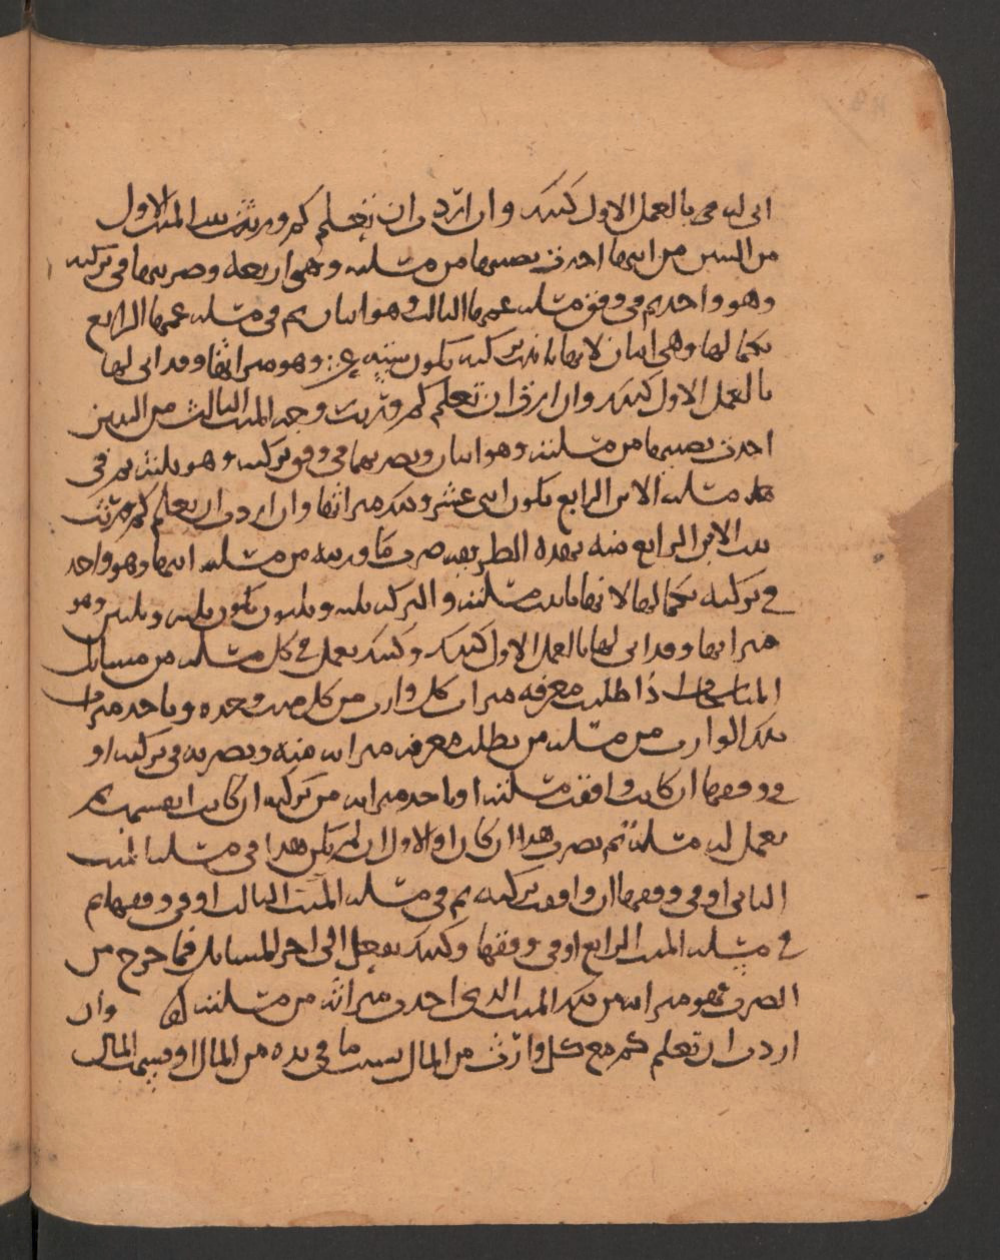 اتى له من بالعمل الاول كذلك وان اردت ان تعلم كم ورثت بنت الميت الاول
من البنين من ابيها اخذت نصيبها من مسئلته وهى اربعة وضربتها فى تركته
وهو واحد ثم فى وفق مسئلة عمها الثالث وهو اثنان ثم فى مسئلة عمها الرابع
بكمالها وهى اثنان لانها باينت تركته يكون ستة عشر وهو ميراثها وقد اتى لها
بالعمل الاول كذلك وان اردت ان تعلم كم ورثت زوجة الميت الثالث من البنين
اخذت نصيبها من مسئلته وهو اثنان وتضربهما فى وفق تركته وهو ثلثة ثم فى
مسئلة الابن الرابع يكون اثنى عشر وذلك ميراثها وان اردت ان تعلم كم ورثت
بنت الابن الرابع منه بهذه الطريقة ضربت ما ورثته من مسئلة ابيها وهو واحد
فى تركته بكمالها لانها باينت مسئلته والتركة ثلثة وثلثون يكون ثلثة وثلثين وهو
ميراثها وقد اتى لها بالعمل الاول كذلك وكذلك تعمل فى كل مسئلة من مسايل
المناسخات اذا طلبت معرفة ميراث كل وارث من كل ميت وحده وتاخذ ميراث
ذلك الوارث من مسئلة من تطلب معرفة ميراثه منه وتضربه فى تركته او
فى وفقها ان كانت وافقت مسئلته او تاخذ ميراثه من تركته ان كانت انقسمت ثم
تعمل له مسئلة ثم تضرب هذا ان كان او الاول ان لم يكن هذا فى مسئلة الميت
الثانى او فى وفقها ان وافقت تركته ثم فى مسئلة الميت الثالث او فى وفقها ثم
فى مسئلة الميت الرابع او فى وفقها وكذلك تفعل الى اخر المسايل فما خرج من
الضرب فهو ميراثه من ذلك الميت الذى اخذت ميراثه من مسئلته وان
اردت ان تعلم كم مع كل وارث من المال نسبت ما فى يده من المال او قسمت المال